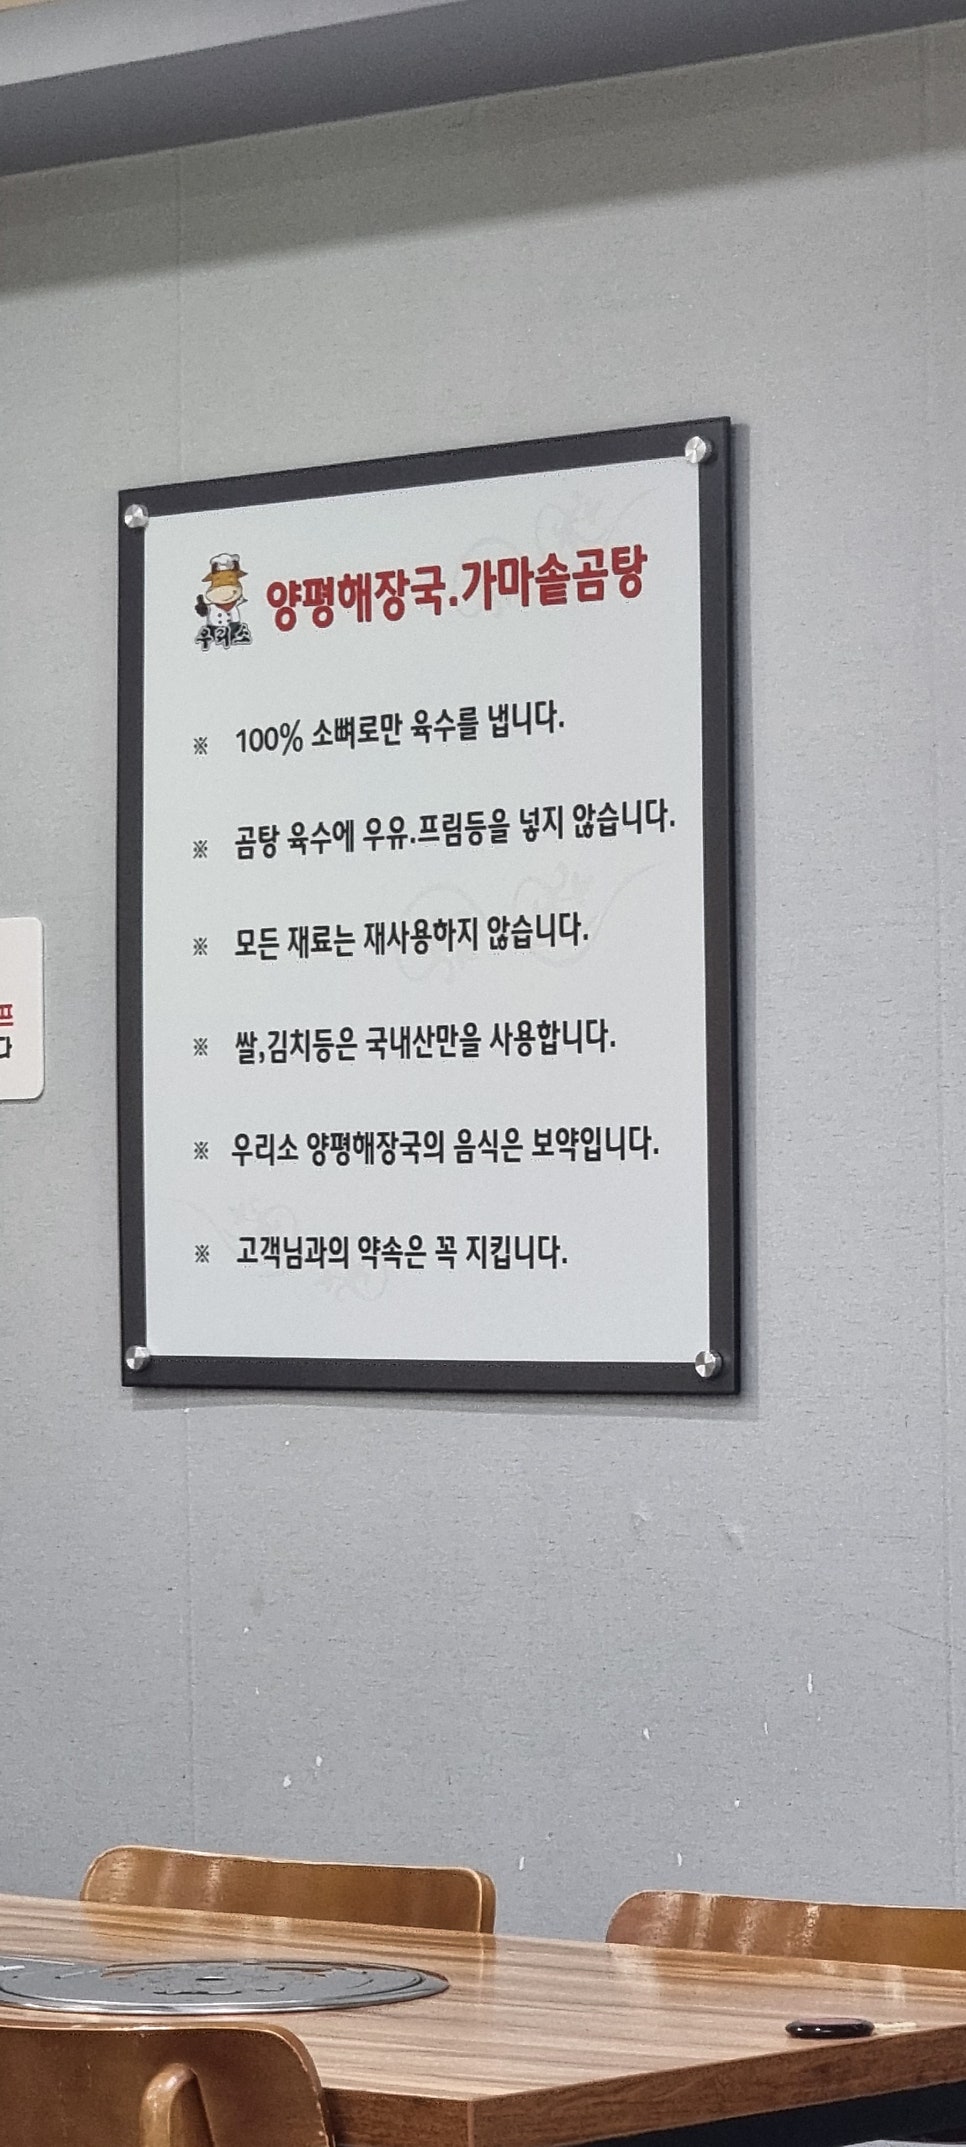 양평해장국.가마솥곰탕
우리소
※ 100% 소뼈로만 육수를 냅니다.
※ 곰탕 육수에 우유.프림등을 넣지 않습니다.
※ 모든 재료는 재사용하지 않습니다.
※ 쌀,김치등은 국내산만을 사용합니다.
※ 우리소 양평해장국의 음식은 보약입니다.
※ 고객님과의 약속은 꼭 지킵니다.
프
다